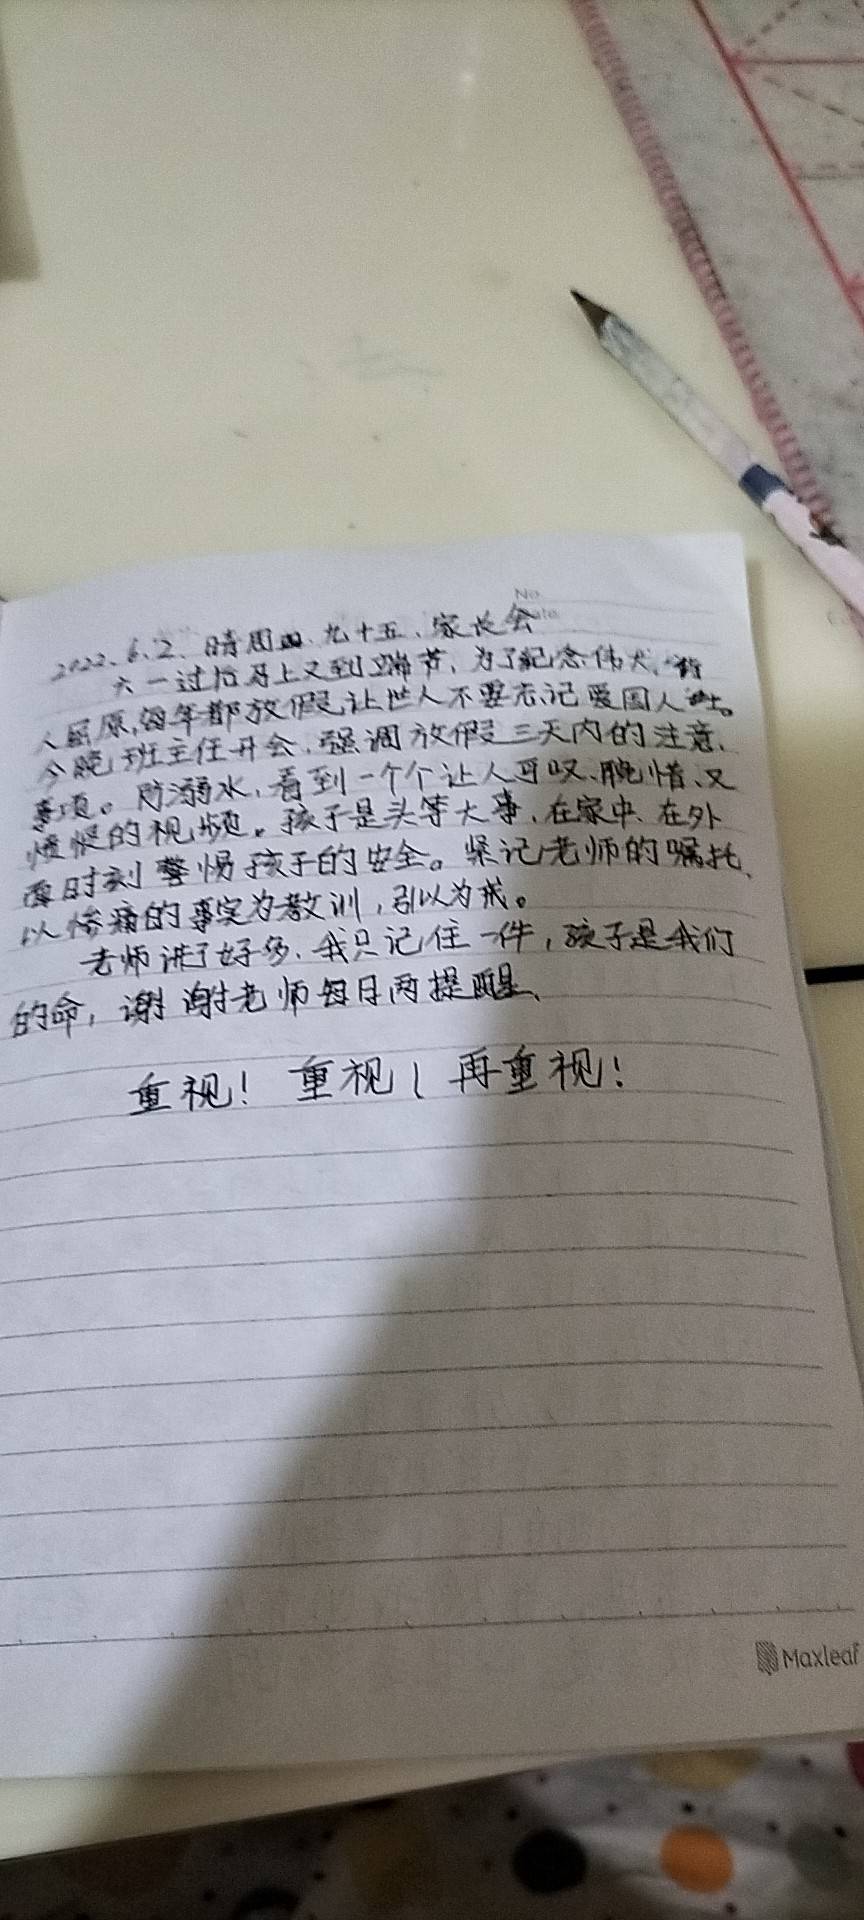 No
Date
2022.6.2. 晴周四.九十五、家长会
六一过后马上又到端节,为了纪念伟大,诗
人屈原,每年都放假,让世人不要忘记爱国人士。
今晚班主任开会,强调放假三天内的注意、
事项。防溺水,看到一个个让人可叹、惋惜、又
的视频。孩子是头等大事,在家中、在外
面时刻警惕孩子的安全。紧记老师的嘱托、
以惨痛的事实为教训,引以为戒。
老师讲了好多.我只记住一件,孩子是我们
的命,谢谢老师每日两提醒、
重视!重视!再重视!
Maxleaf